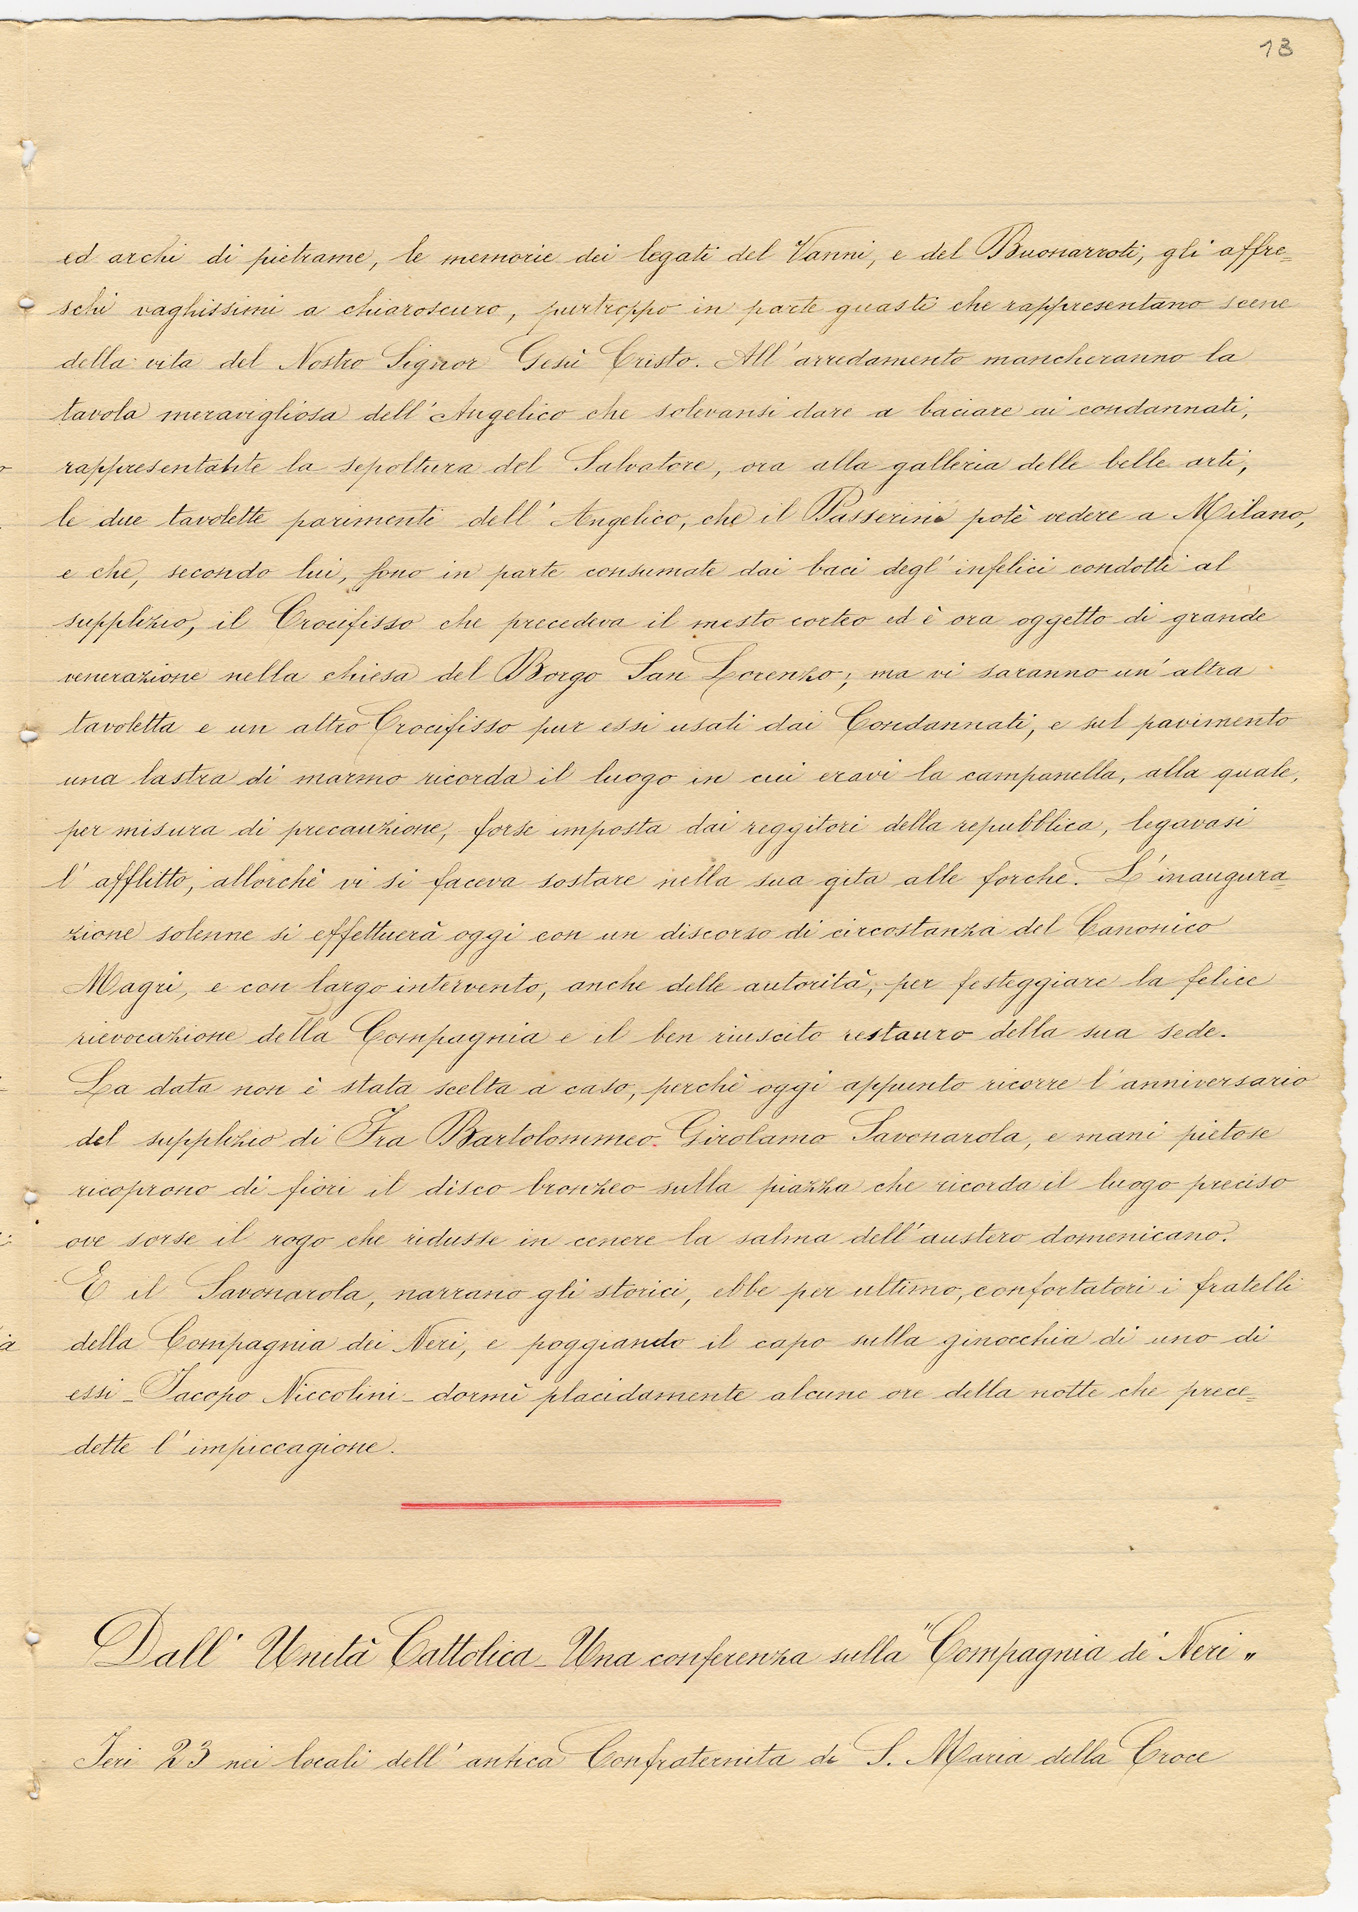 13
ed archi di pietrame, le memorie dei legati del Vanni, e del Buonarroti, gli affre=
schi vaghissimi a chiaroscuro, purtroppo in parte guasti che rappresentano scene
della vita del Nostro Signor Gesù Cristo. All'arredamento mancheranno la
tavola meravigliosa dell'Angelico che solevansi dare a baciare ai condannati,
rappresentante la sepoltura del Salvatore, ora alla galleria delle belle arti,
le due tavolette parimenti dell'Angelico, che il Passerini potè vedere a Milano,
e che, secondo lui, sono in parte consumate dai baci degl'infelici condotti al
supplizio, il Crocifisso che precedeva il mesto corteo ed è ora oggetto di grande
venerazione nella chiesa del Borgo San Lorenzo; ma vi saranno un'altra
tavoletta e un altro Crocifisso pur essi usati dai Condannati, e sul pavimento
una lastra di marmo ricorda il luogo in cui eravi la campanella, alla quale,
per misura di precauzione, forse imposta dai reggitori della repubblica, legavasi
l'afflitto, allorchè vi si faceva sostare nella sua gita alle forche. L'inaugura=
zione solenne si effettuerà oggi con un discorso di circostanza del Canonico
Magri, e con largo intervento, anche delle autorità, per festeggiare la felice
rievocazione della Compagnia e il ben riuscito restauro della sua sede.
La data non è stata scelta a caso, perchè oggi appunto ricorre l'anniversario
del supplizio di Fra Bartolommeo Girolamo Savonarola, e mani pietose
ricoprono di fiori il disco bronzeo sulla piazza che ricorda il luogo preciso
ove sorse il rogo che ridusse in cenere la salma dell'austero domenicano.
E il Savonarola, narrano gli storici, ebbe per ultimo, confortatori i fratelli
della Compagnia dei Neri, e poggiando il capo sulla ginocchia di uno di
essi - Jacopo Niccolini - dormì placidamente alcune ore della notte che prece=
dette l'impiccagione.
Dall' Unità Cattolica - Una conferenza sulla "Compagnia de' Neri"
Ieri 23 nei locali dell'antica Confraternita di S. Maria della Croce